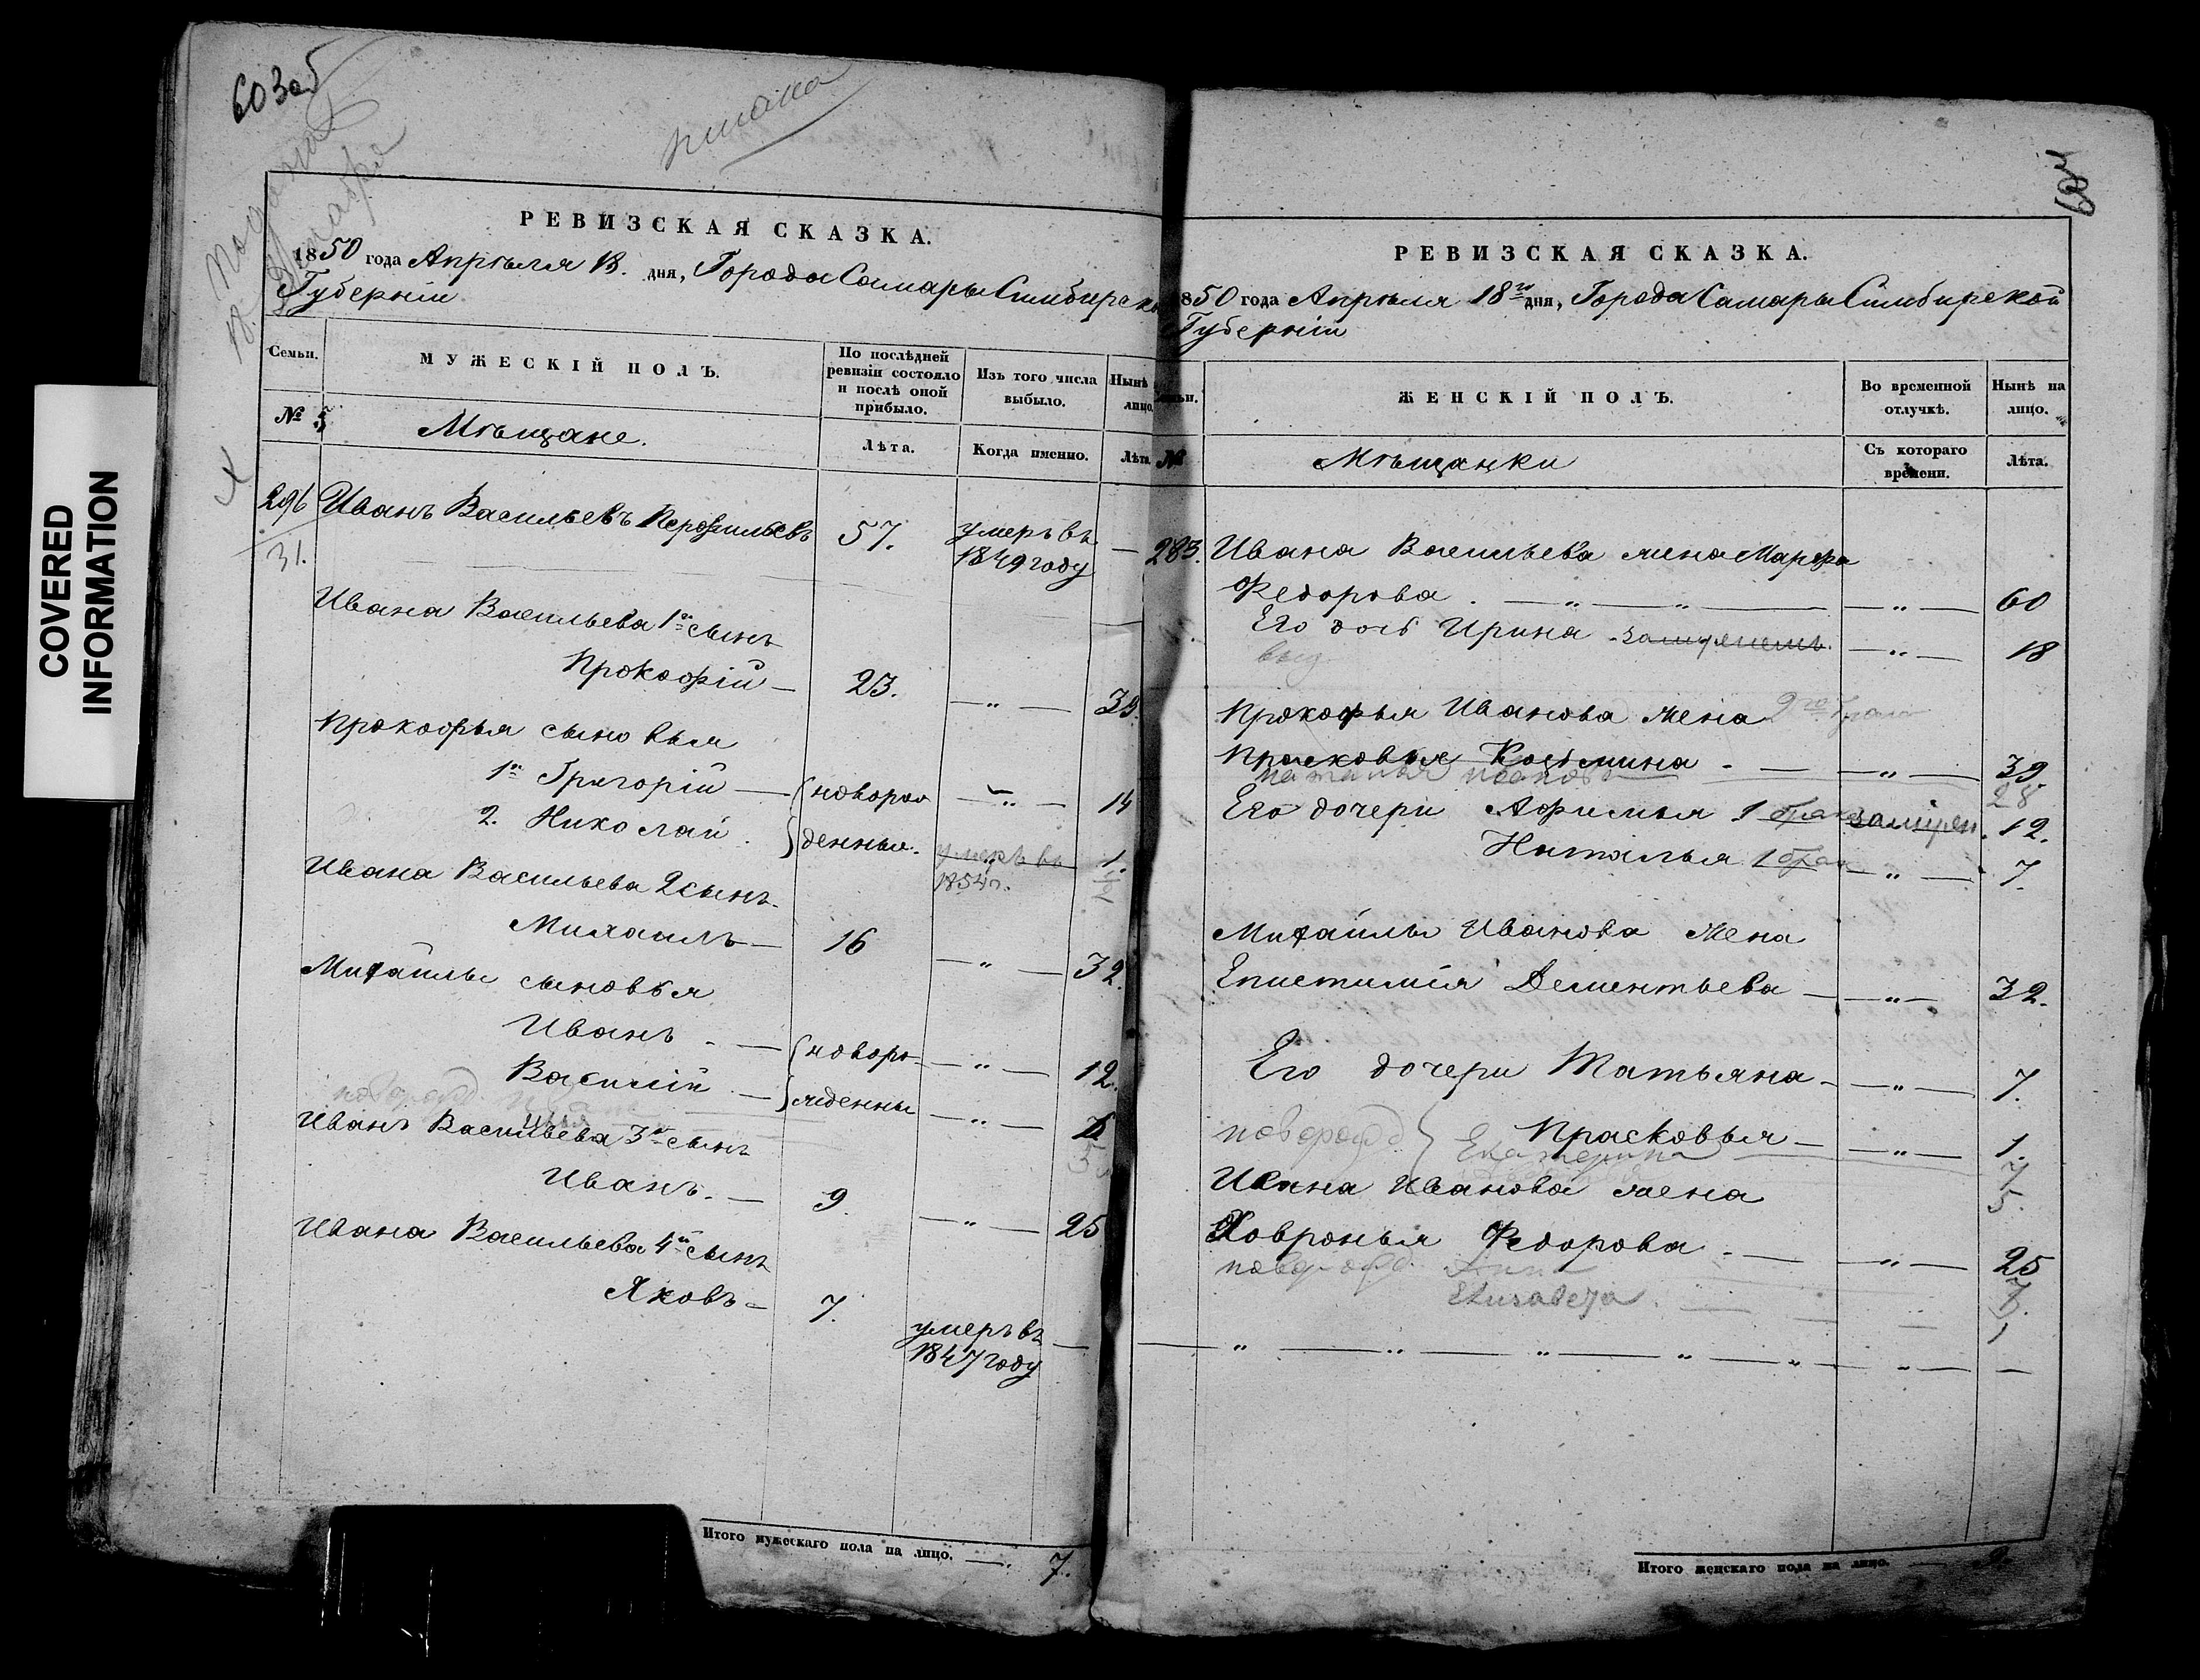 603об
РЕВИЗСКАЯ СКАЗКА.
1850 года Апрѣля 18. дня, Города Самары Симбирско
Губерніи
Семьи.
МУЖЕСКІЙ ПОЛЪ.
По послѣдней ревизіи состояло и послѣ оной прибыло.
Изъ того числа выбыло.
Нынѣ лицо.
№ 5
Мѣщане.
Лѣта.
Когда именно.
Лѣта
296 Иванъ Васильевъ Перфильевъ 57. умеръ въ
31. 1849 году —
Ивана Васильева 1й сынъ
Прокофій — 23. — „ — 39.
Прокофья сыновья
1й Григорій — (новорож — „ — 14
2. Николай. }денныя. умеръ въ 1.
1854 г.
Ивана Васильева 2 сынъ.
Михаилъ — 16 — „ — 32.
Михайлы сыновья
Иванъ. — (новоро— — „ — 12.
Василій. — }жденны — „ —
новорожд.
Иванъ Васильева 3й сынъ
Иванъ. — 9. — „ — 25
Ивана Васильева 4й сынъ
Яковъ — 7.
умеръ въ
1847 году —
Итого мужескаго пола на лицо. — 7.
604
РЕВИЗСКАЯ СКАЗКА.
1850 года Апрѣля 18го дня, Города Самары Симбирской
Губерніи
ЖЕНСКІЙ ПОЛЪ.
Во временной отлучкѣ.
Нынѣ на лицо.
№
Мѣщанки
Съ котораго времени.
Лѣта.
283. Ивана Васильева жена Марфа
Федорова. — „ — „ — — „ — 60
Его дочь Ирина замужемъ. — „ — 18
Прокофья Иванова жена 2го брака
Прасковья Козьмина — — „ — 39
28
Его дочери Афимья 1 брака замужем. 12.
Наталья 1 брак — „ — 7.
Михайлы Иванова жена
Епистимія Дементьева — — „ — 32.
Его дочери Татьяна — — „ — 7.
новорожд } Прасковья — — „ — 1.
Екатерина 7
5.
Ивана Иванова жена
Ховронья Федорова. — — „ — 25
новорожд. Анна 7.
Елизавета. 1
— „ — „ — „ — „ — „ — „ — —
Итого женскаго пола на лицо. — 9.
COVERED
INFORMATION